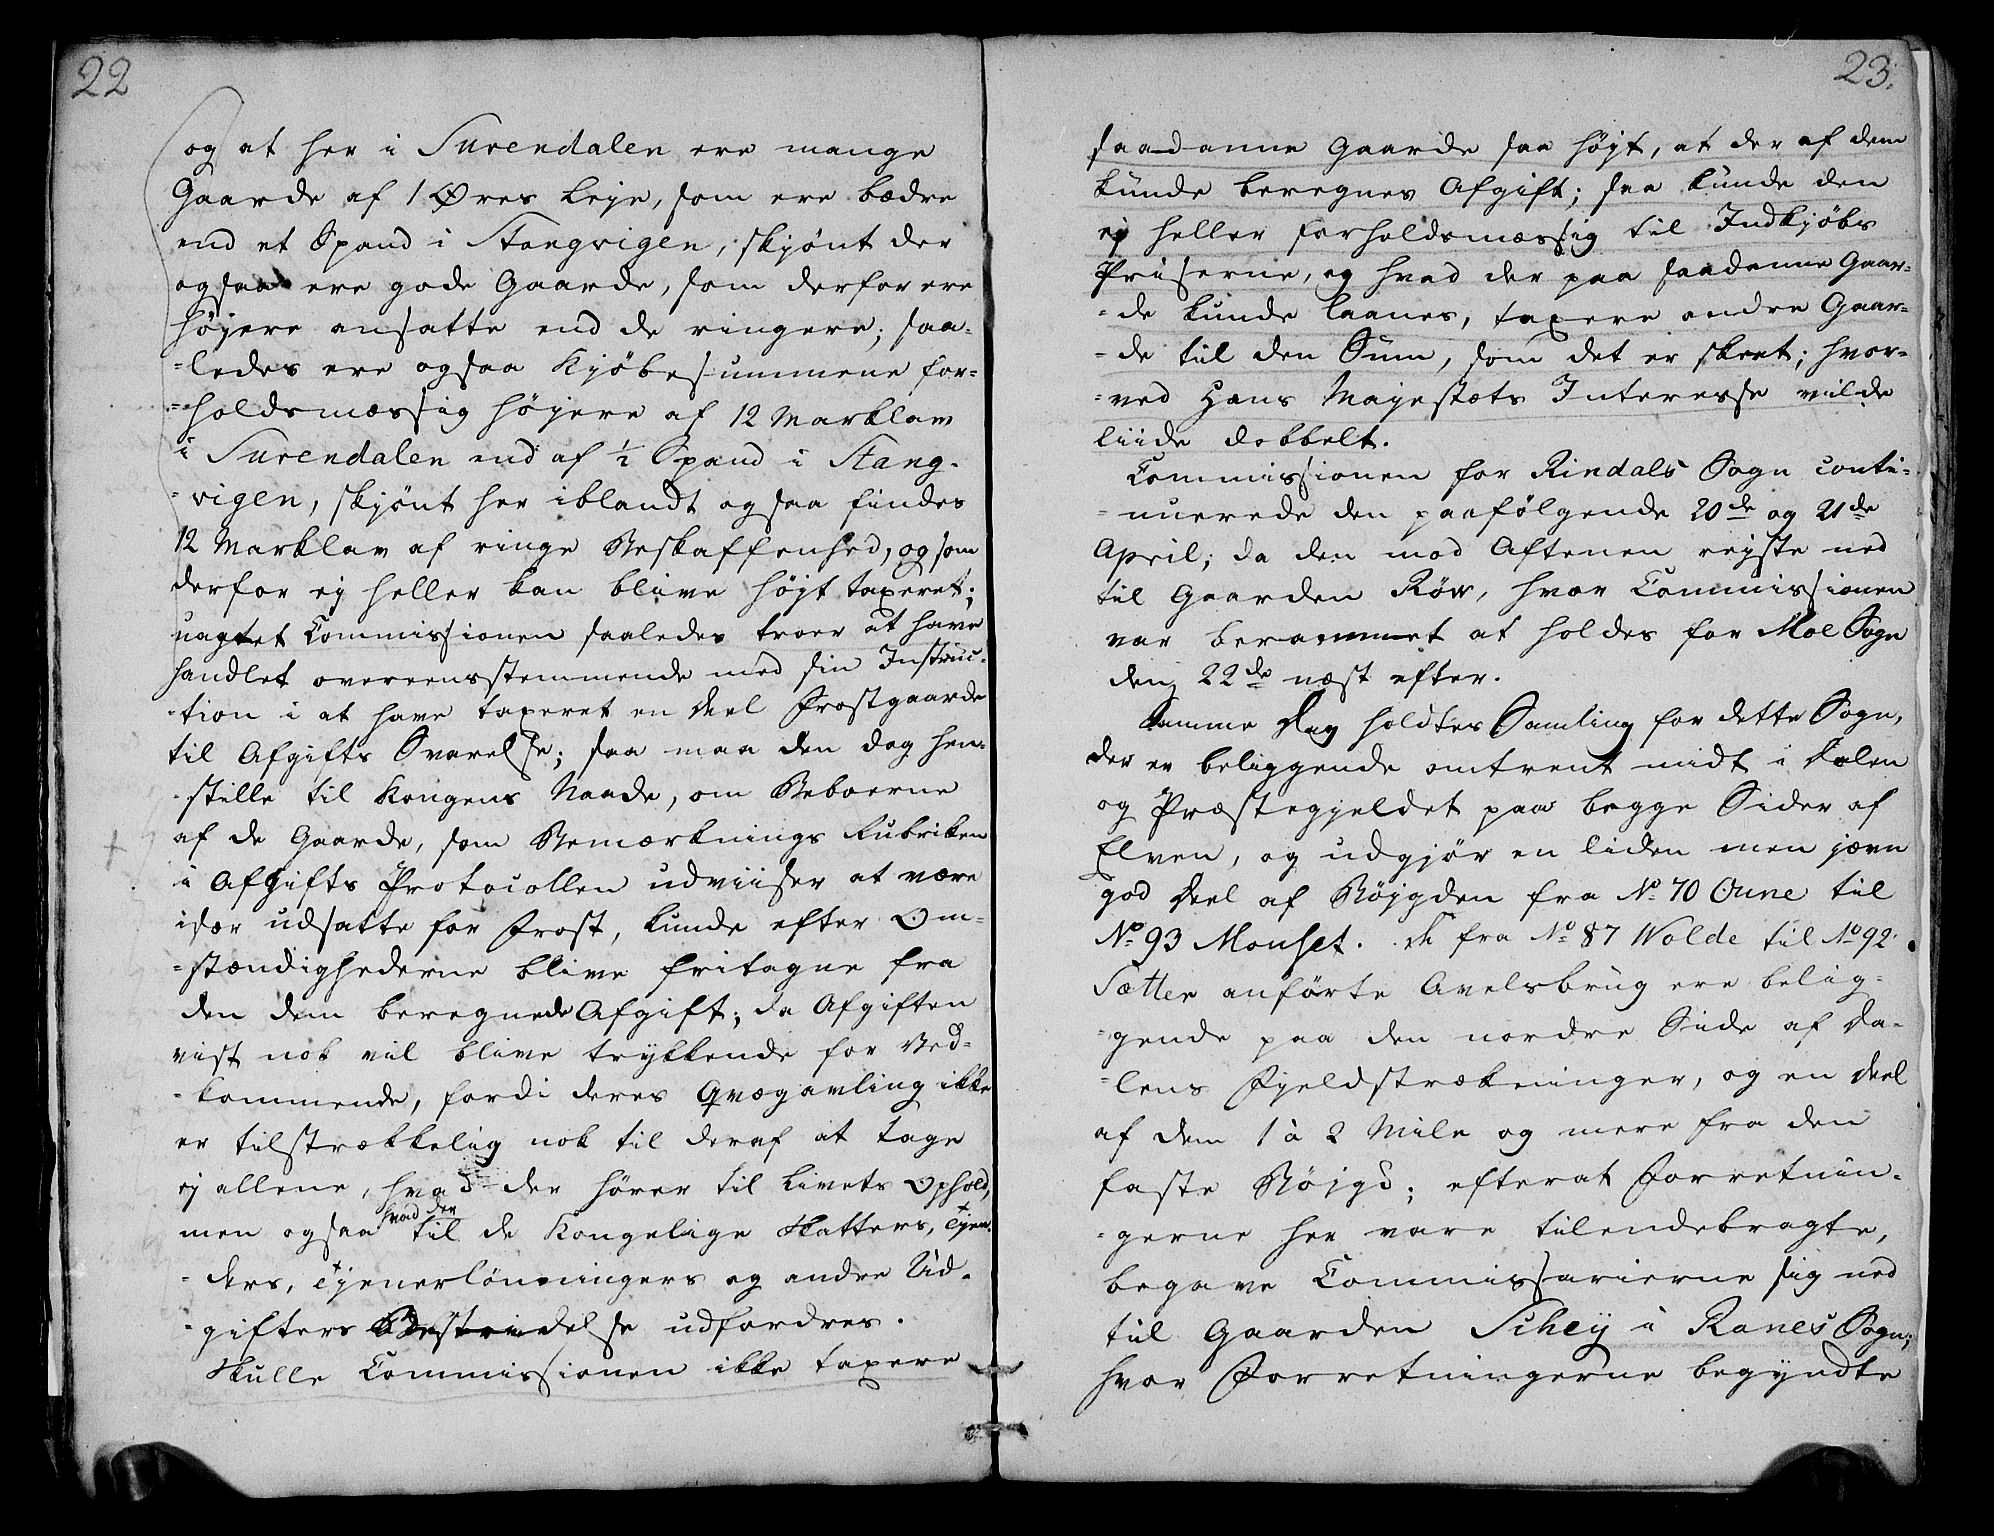 22
og at her i Surendalen ere mange
Gaarde af 1 Øres Leje, som ere bædre
end et Spand i Stangvigen, skjønt der
ogsaa ere gode Gaarde, som derfor ere
højere ansatte end de ringere; saa-
-ledes ere ogsaa Kjøbesummene for-
-holdsmæssig højere af 12 Marklav
i Surendalen end af 1/2 Spand i Stang-
-vigen, skjønt her iblandt ogsaa findes
12 Marklav af ringe Beskaffenhed, og som
derfor ej heller kan blive højt taxeret;
uagtet Commissionen saaledes troer at have
handlet overeensstemmende med sin Instruc-
-tion i at have taxeret en deel Frostgaarde
til Afgifts Svarelse; saa maa den dog hen-
-stille til Kongens Naade, om Beboerne
af de Gaarde, som Bemærknings Rubriken
i Afgifts Protocollen udviiser at være
især udsatte for Frost, kunde efter Om-
-stændighederne blive fritagne fra
den dem beregnede Afgift; da Afgiften
vist nok vil blive trykkende for Ved-
-kommende, fordi deres Qvægavling ikke
er tilstrækkelig nok til deraf at tage
ej allene, hvad der hører til Livets Ophold,
men ogsaa hvad der til de Kongelige Skatters, Tjen-
-ders, Tjenerlønningers og andre Ud-
-gifters Bestridelse udfordres.
Skulle Commissionen ikke taxere
23.
saadanne Gaarde saa højt, at der af dem
kunde beregnes Afgift; saa kunde den
ej heller forholdsmæssig til Indkjøbs
Priserne, og hvad der paa saadanne Gaar-
-de kunde laanes, taxere andre Gaar-
-de til den Sum, som det er skeet; hvor-
-ved Hans Majestæts Interesse vilde
liide dobbelt.
Commissionen for Rindals Sogn conti-
-nuerede den paafølgende 20de og 21de
April; da den mod Aftenen rejste ned
til Gaarden Røv, hvor Commissionen
var berammet at holdes for Moe Sogn
den 22de næst efter.
Samme Dag holdtes Samling for dette Sogn,
der er beliggende omtrent midt i Dalen
og Præstegjeldet paa begge Sider af
Elven, og udgjør en liden men jævn
god Deel af Bøjgden fra No 70 Oune til
No 93 Mouset. De fra No 87 Wolde til No 92
Sætter anførte Avelsbrug ere belig-
-gende paa den nordre Side af Da-
-lens Fjeldstrækninger, og en deel
af dem 1 à 2 Mile og mere fra den
faste Bøjgd; efterat Forretnin-
-gerne her vare tilendebragte,
begave Commissarierne sig ned
til Gaarden Schey i Ranes Sogn,
hvor Forretningerne begyndte